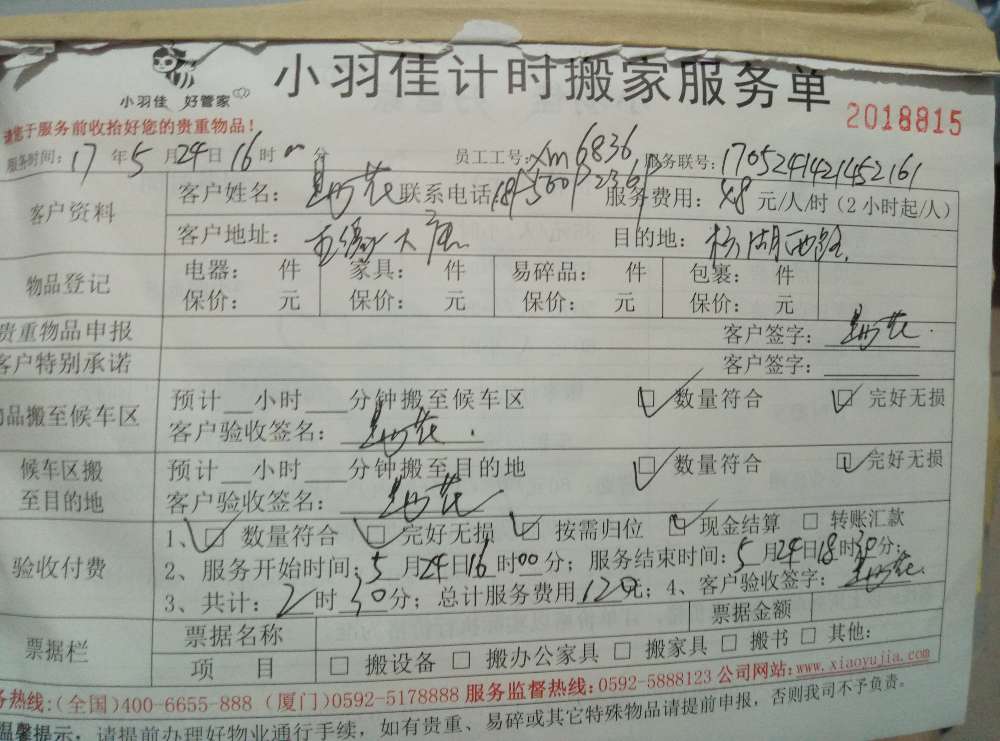 小羽佳 好管家
小羽佳计时搬家服务单
2018815
请您于服务前收拾好您的贵重物品！
服务时间：17年5月24日16时 分 员工工号：xm6836 服务联号：1705241421452161
客户资料
客户姓名： 联系电话： 服务费用：48元/人/时（2小时起/人）
客户地址： 大 目的地： 湖西路
物品登记
电器： 件 家具： 件 易碎品： 件 包裹： 件
保价： 元 保价： 元 保价： 元 保价： 元
贵重物品申报 客户签字：
客户特别承诺 客户签字：
物品搬至候车区
预计 小时 分钟搬至候车区 □ 数量符合 □ 完好无损
客户验收签名：
候车区搬至目的地
预计 小时 分钟搬至目的地 □ 数量符合 □ 完好无损
客户验收签名：
验收付费
1、□ 数量符合 □ 完好无损 □ 按需归位 □ 现金结算 □ 转账汇款
2、服务开始时间：5月24日16时00分；服务结束时间：5月24日18时30分；
3、共计：2时30分；总计服务费用120元；4、客户验收签字：
票据栏
票据名称 票据金额
项 目 □ 搬设备 □ 搬办公家具 □ 搬家具 □ 搬书 □ 其他：
务热线：(全国)400-6655-888 (厦门)0592-5178888 服务监督热线：0592-5888123 公司网站：www.xiaoyujia.com
温馨提示：请提前办理好物业通行手续，如有贵重、易碎或其它特殊物品请提前申报，否则我司不予负责。